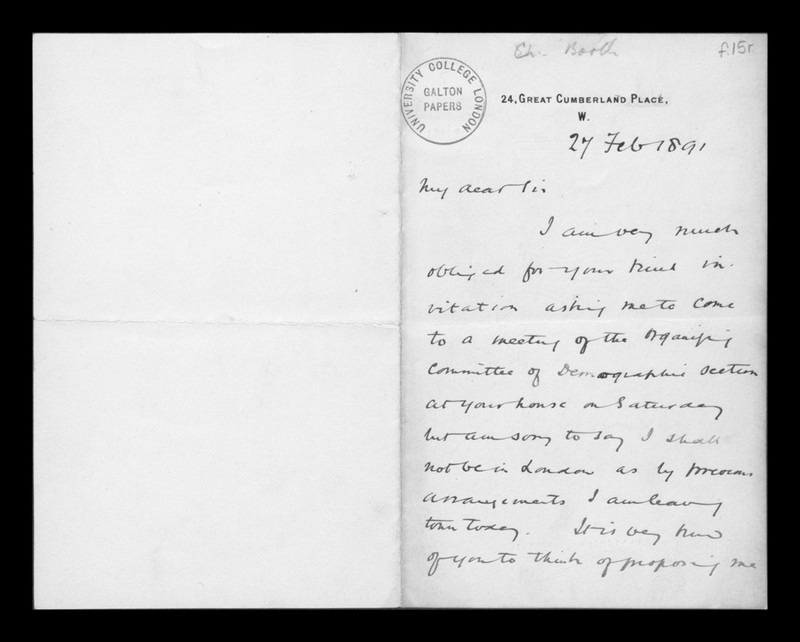 Ch. Booth
f.15r
UNIVERSITY COLLEGE LONDON
GALTON
PAPERS
24, GREAT CUMBERLAND PLACE,
W.
27 Feb 1891
My dear Sir
I am very much
obliged for your kind in-
vitation asking me to come
to a meeting of the organising
Committee of Demographic section
at your house on Saturday
but am sorry to say I shall
not be in London as by previous
arrangements I am leaving
town today. It is very kind
of you to think of proposing me